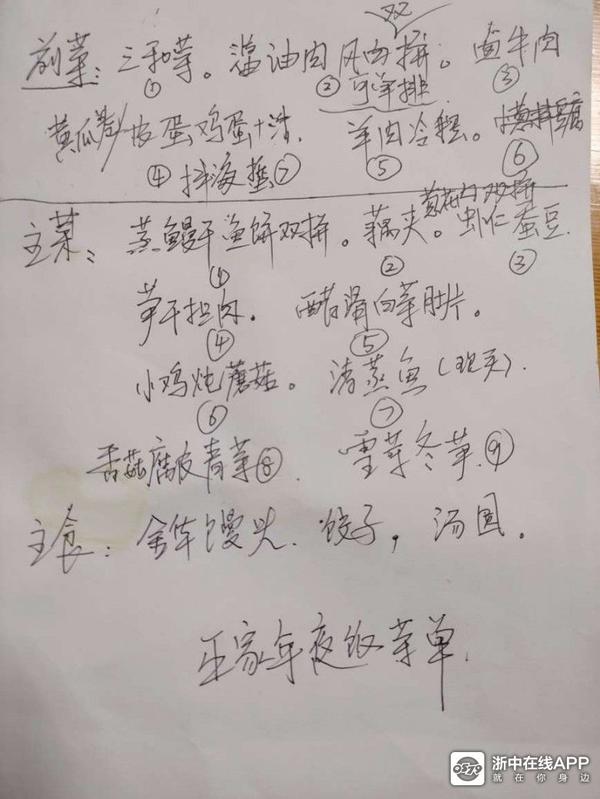 双
前菜：三和菜。酱油肉风肉拼。卤牛肉
① ② 可羊排 ③
黄瓜 皮蛋鸡蛋 羊肉冷
④ 拌海蜇⑦ ⑤ ⑥
双拼
主菜：蒸鳗干鱼饼双拼。藕夹。虾仁蚕豆.
① ② ③
笋干扣肉. 醋溜白菜肚片。
④ ⑤
小鸡炖蘑菇。清蒸鱼(现买).
⑥ ⑦
香菇腐皮青菜⑧ 雪菜冬笋.⑨
主食：馒头. 饺子，汤圆。
家年夜饭菜单.
浙中在线APP
就在你身边